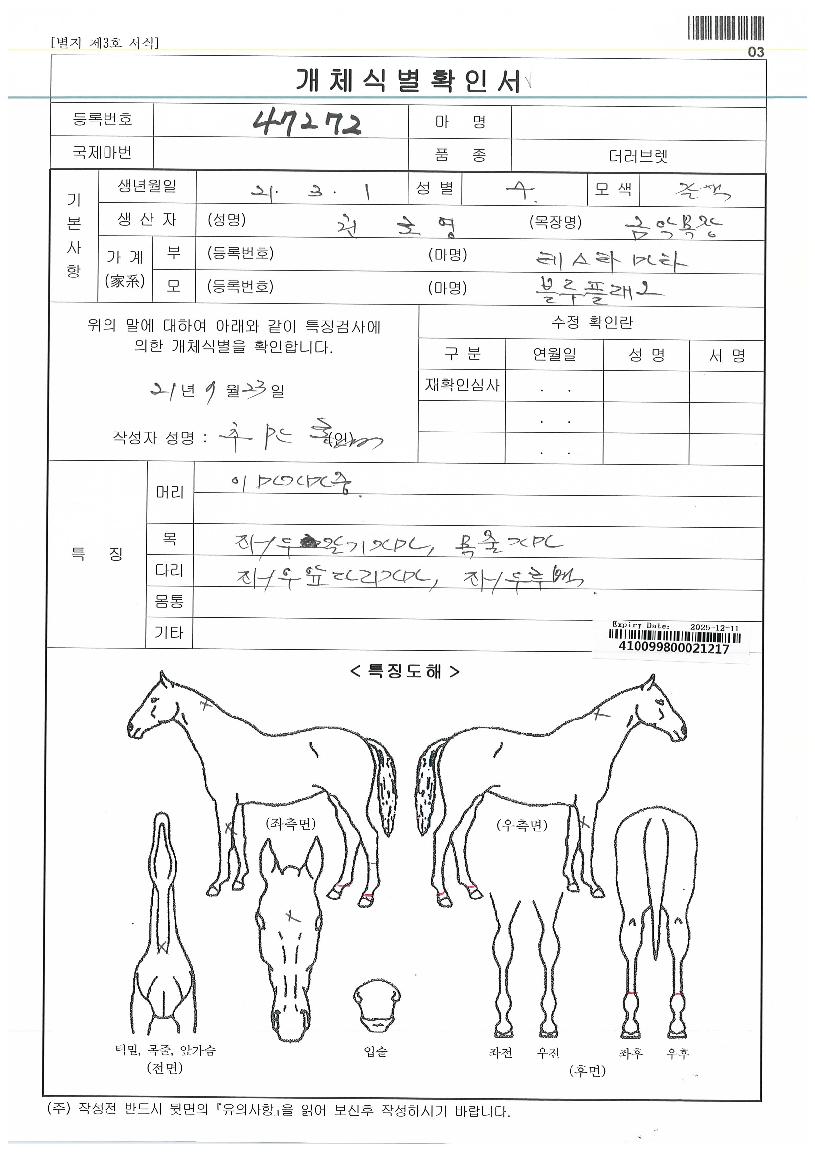 [별지 제3호 서식]
03
개체식별확인서
등록번호 47272 마 명
국제마번 품 종 더러브렛
기본사항
생년월일 21. 3. 1 성 별 수 모 색
생 산 자 (성명) 권 호 영 (목장명) 금악목장
가 계 (家系) 부 (등록번호) (마명) 테스타마타
모 (등록번호) (마명) 블루플래그
위의 말에 대하여 아래와 같이 특징검사에
의한 개체식별을 확인합니다.
21년 9월 23일
작성자 성명 : (인)
수정 확인란
구 분 연월일 성 명 서 명
재확인심사 . .
. .
. .
특 징
머리
목 좌/우 찰기자마, 목줄자마
다리 좌/우 앞다리자마, 좌/우후백
몸통
기타
Expiry Date: 2025-12-11
410099800021217
< 특징도해 >
(좌측면) (우측면)
턱밑, 목줄, 앞가슴
(전면)
입술
좌전 우전 좌후 우후
(후면)
(주) 작성전 반드시 뒷면의 『유의사항』을 읽어 보신후 작성하시기 바랍니다.